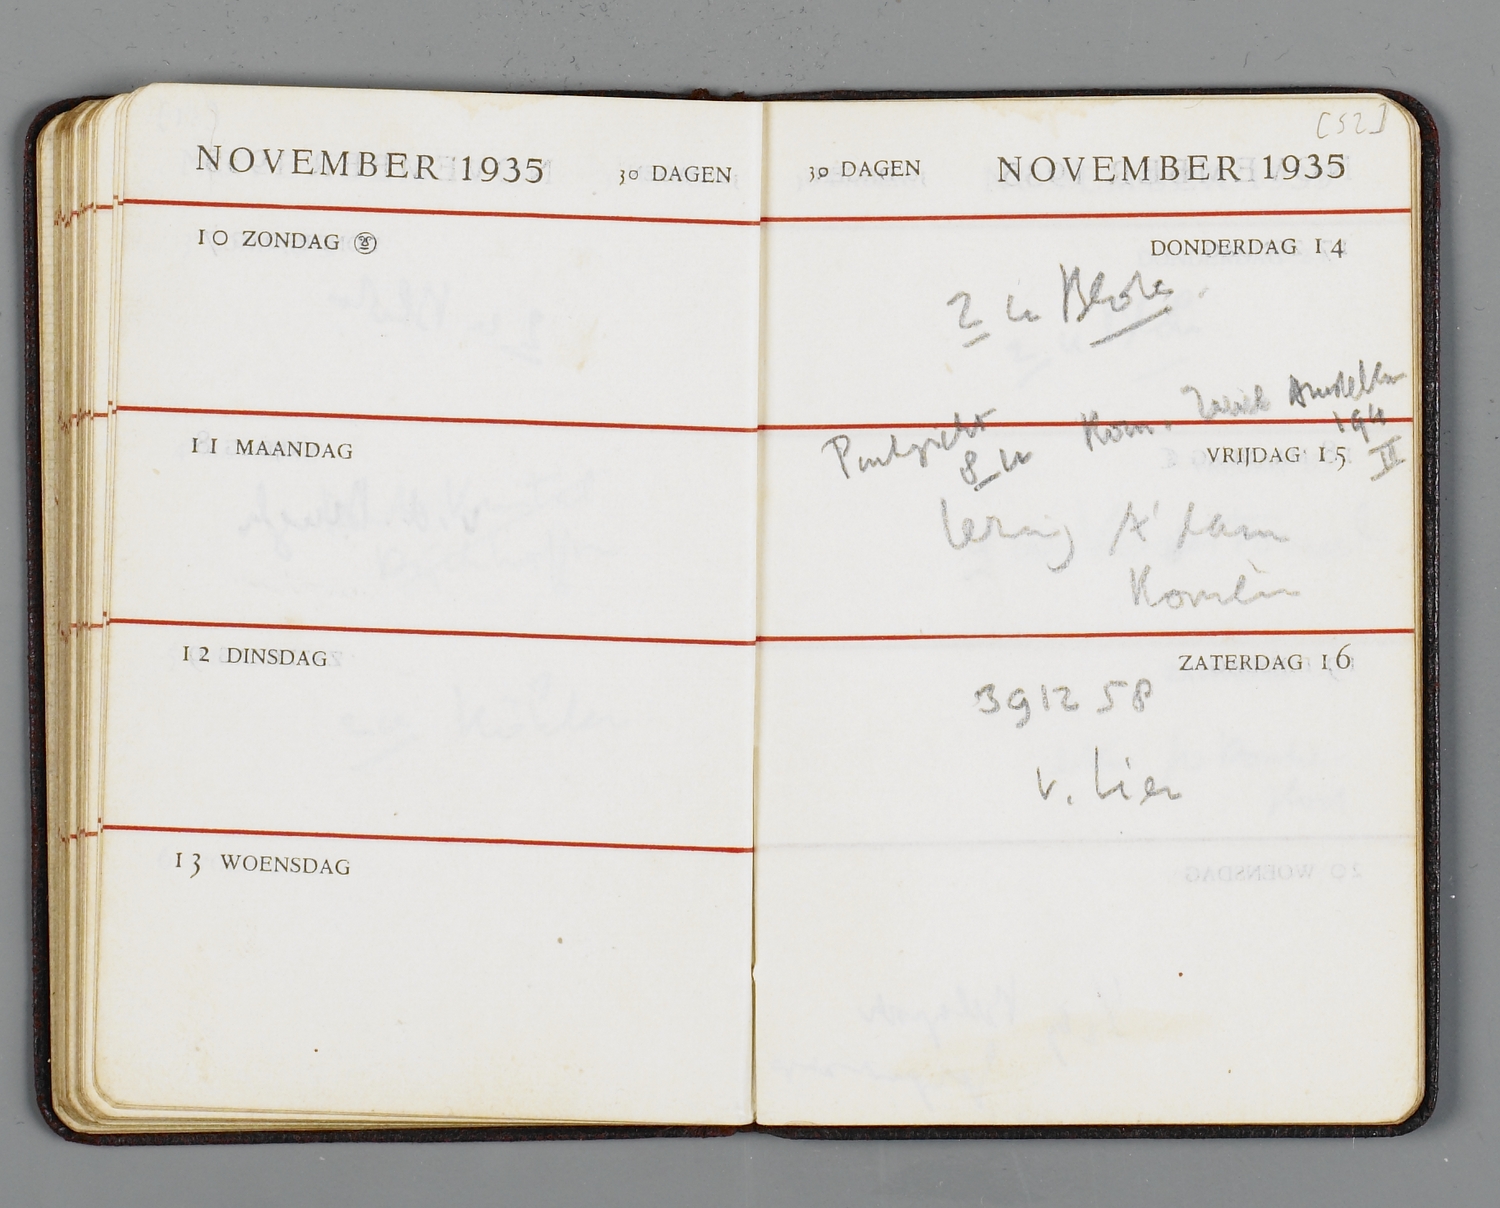 NOVEMBER 1935 30 DAGEN
10 ZONDAG
11 MAANDAG
12 DINSDAG
13 WOENSDAG
[52]
30 DAGEN NOVEMBER 1935
DONDERDAG 14
2 u
Amstelkade
194
8 u Kom.
II
VRIJDAG 15
lezing A'dam
ZATERDAG 16
391258
v. Lier